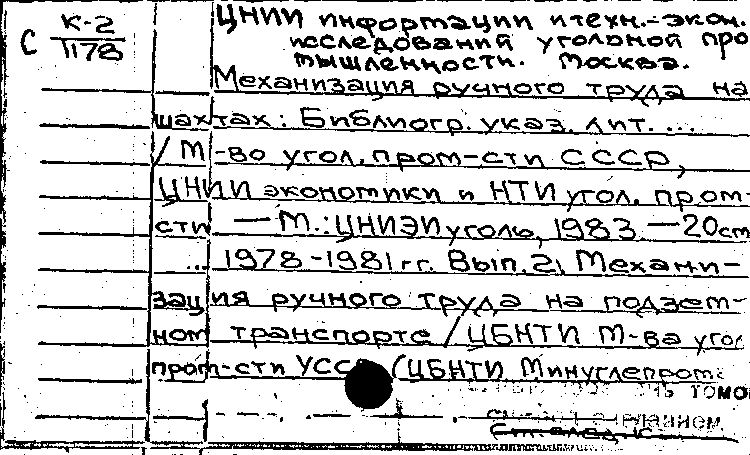 ЦНИИ информации и техн.-экон.
С К-2
1178
исследований угольной про
мышленности. Москва.
Механизация ручного труда на
шахтах: Библиогр. указ. лит. ...
/ М-во угол. пром-сти СССР,
ЦНИИ экономики и НТИ угол. пром-
сти — М.: ЦНИЭИуголь, 1983 — 20см
... 1978-1981 гг. Вып. 2, Механи-
зация ручного труда на подзем-
ном транспорте / ЦБНТИ М-ва угол
пром-сти УССР (ЦБНТИ Минуглепром
См. след. к